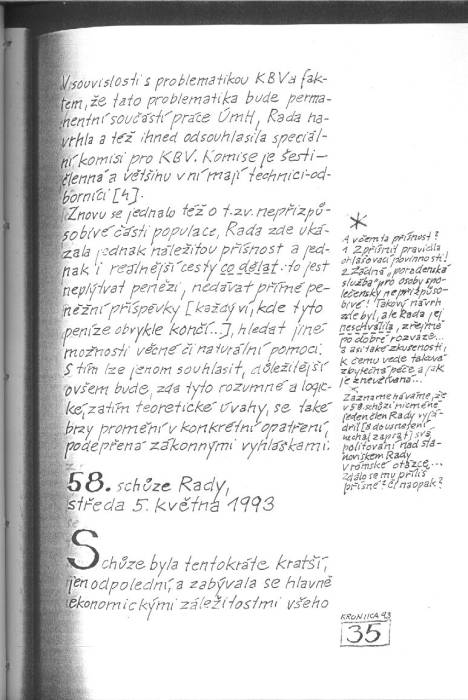 V souvislosti s problematikou KBV a fak-
tem, že tato problematika bude perma-
nentní součástí práce ÚmH, Rada na-
vrhla a též ihned odsouhlasila speciál-
ní komisi pro KBV. Komise je šesti-
členná a většinu v ní mají technici-od-
borníci [4].
Znovu se jednalo též o t.zv. nepřizpů-
sobivé části populace, Rada zde uká-
zala jednak náležitou přísnost a jed-
nak i reálnější cesty co dělat: to jest
neplýtvat penězi, nedávat přímé pe-
něžní příspěvky [každý ví, kde tyto
peníze obvykle končí...], hledat jiné
možnosti věcné či naturální pomoci.
S tím lze jenom souhlasit, důležitější
ovšem bude, zda tyto rozumné a logic-
ké, zatím teoretické úvahy, se také
brzy promění v konkrétní opatření,
podepřená zákonnými vyhláškami.
58. schůze Rady,
středa 5. května 1993
Schůze byla tentokráte kratší,
jen odpolední, a zabývala se hlavně
ekonomickými záležitostmi všeho
*
A v čem ta přísnost?
1 Zpřísnit pravidla
ohlašovací povinnosti!
2 Žádná „pořadenská
služba" pro osoby spo-
lečensky nepřizpůso-
bivé! Takový návrh
zde byl, ale Rada jej
neschválila, zřejmě
po dobré rozvaze...
a asi také zkušenosti,
k čemu vede taková
zbytečná péče a jak
je zneužívána...
*
Zaznamenáváme, že
v 58. schůzi nicméně
jeden člen Rady vyjá-
dřil [a do usnesení
nechal zapsat] své
politování nad sta-
noviskem Rady
v romské otázce...
Zdálo se mu příliš
přísné? Či naopak?
KRONIKA 93
35